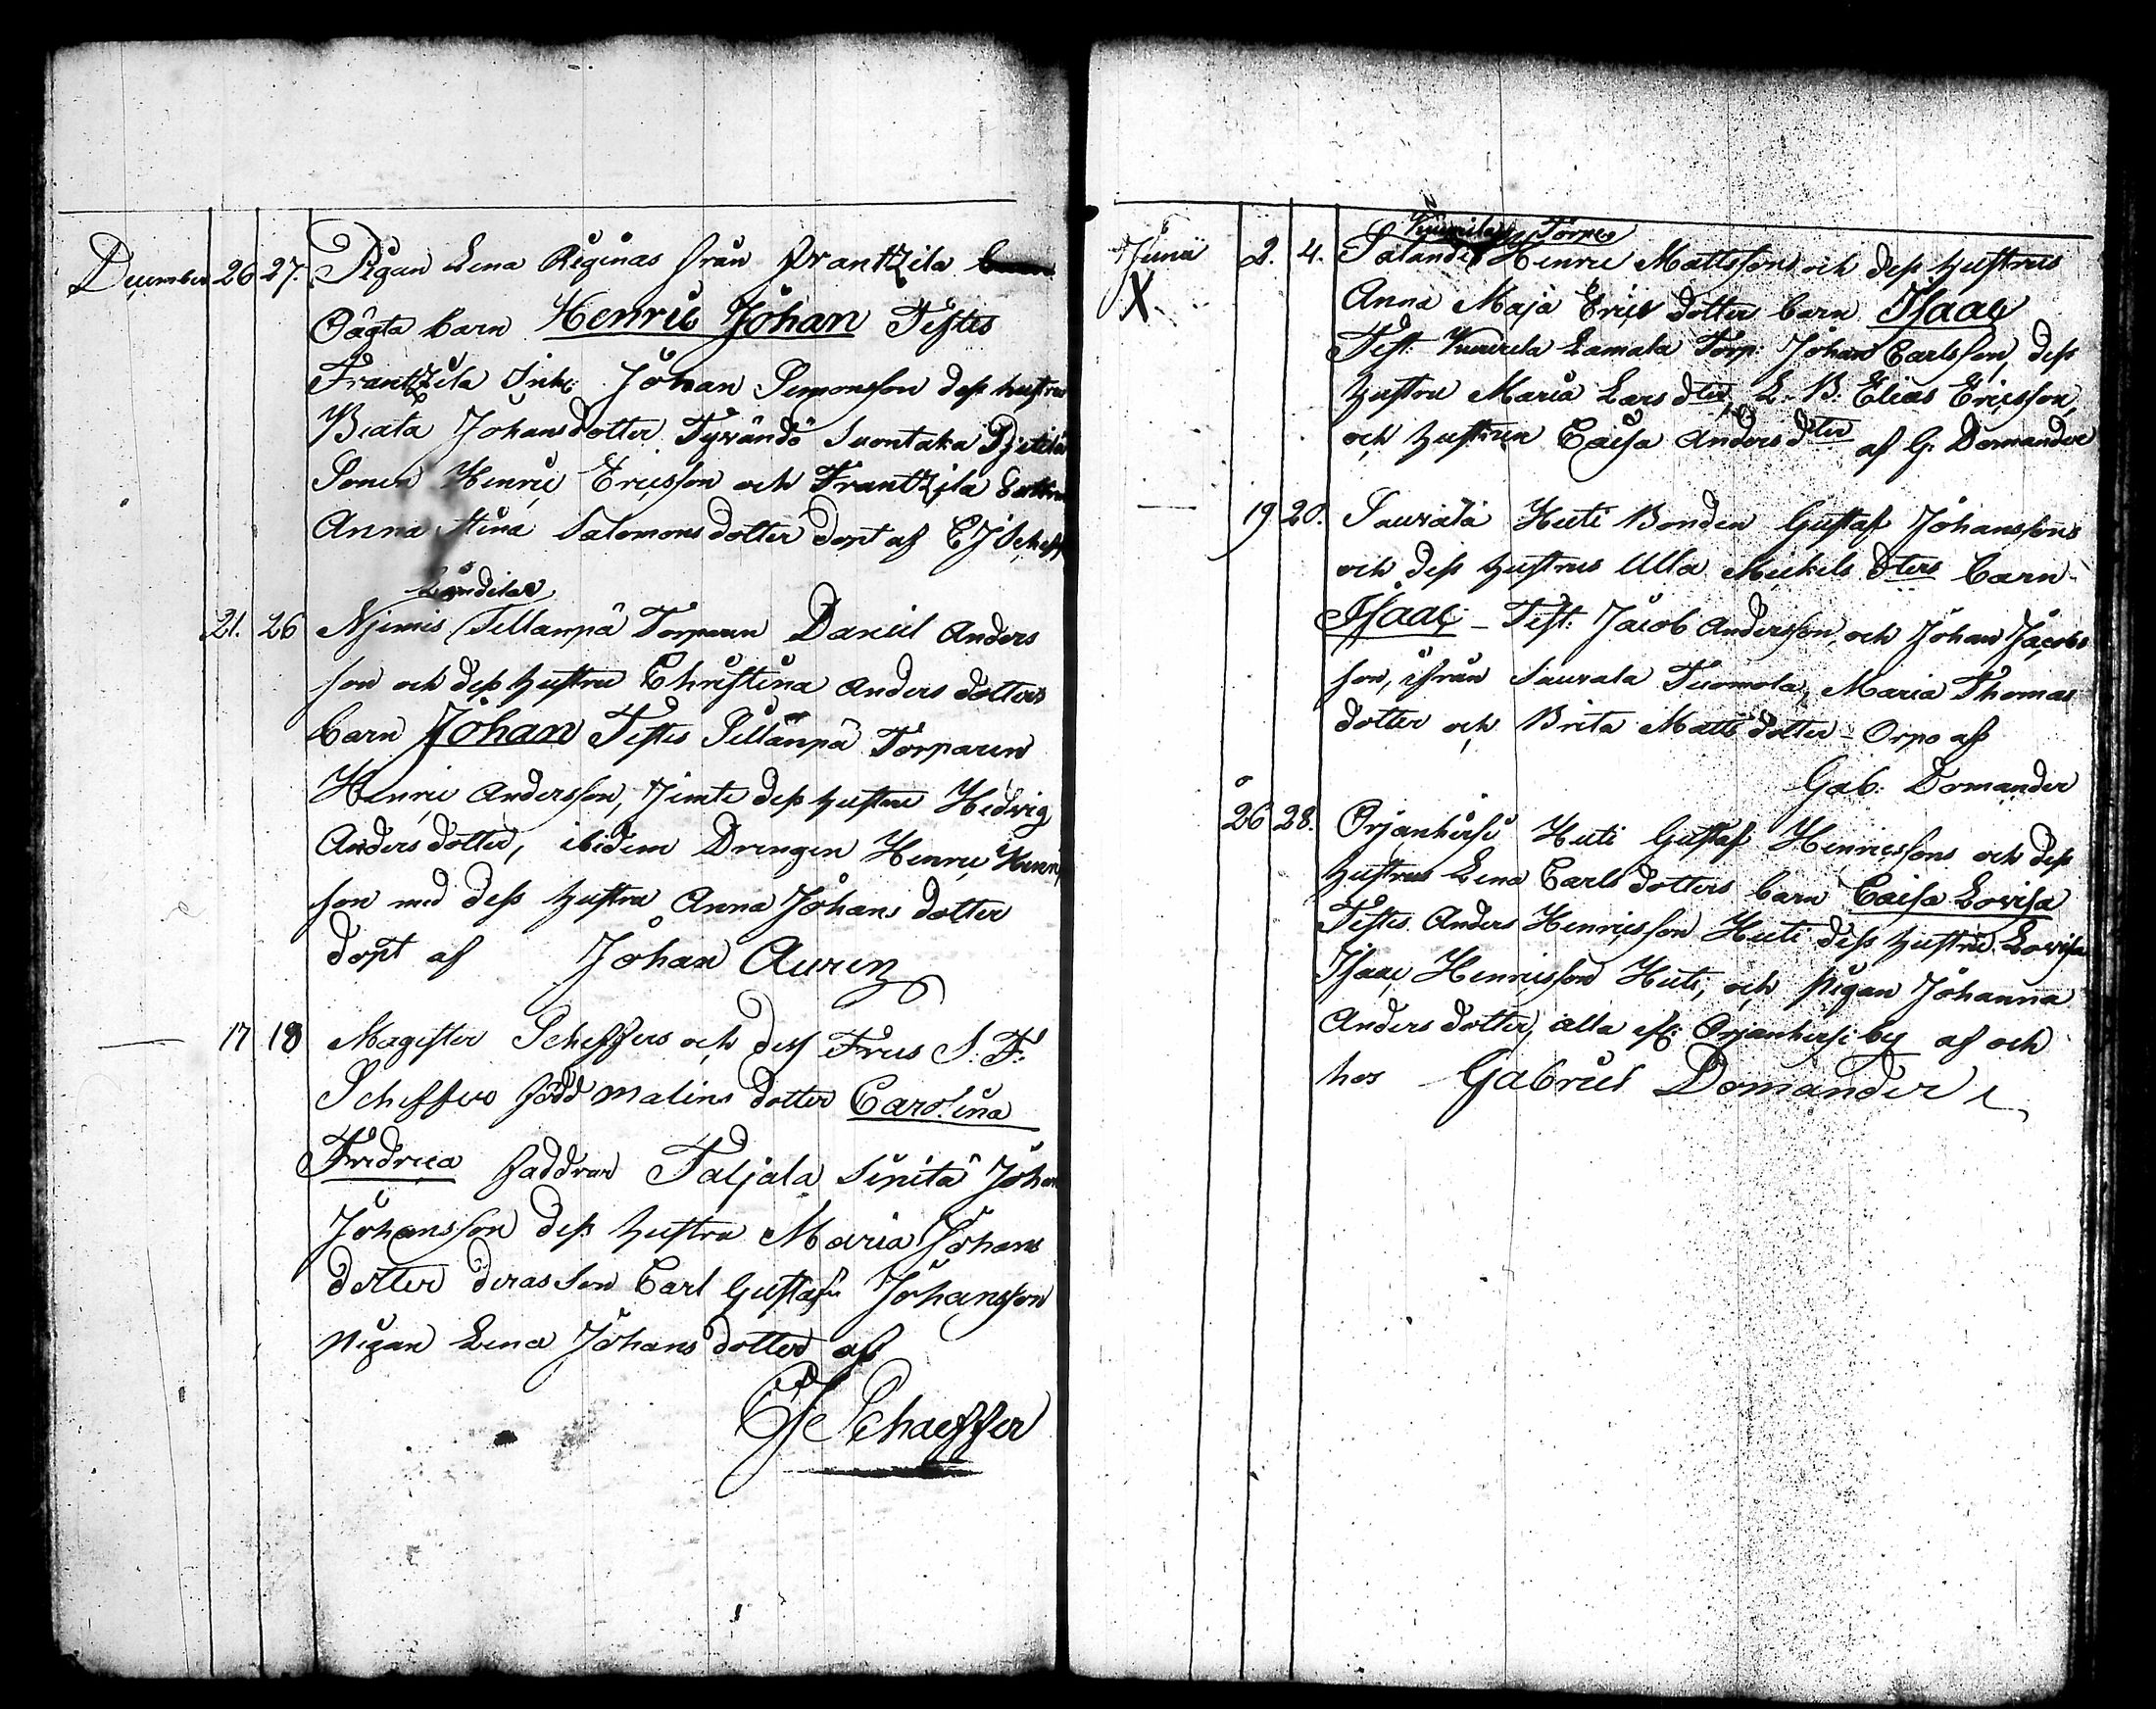 December 26 27. Pigan Lena Reginas från Frantzila
Oägta barn Henric Johan Testes
Frantzila Inh: Johan Simonsson dess hustru
Beata Johansdotter Tyrändö Suontaka
Sonen Henric Ericsson och Frantzila
Anna Stina Salomons dotter döpt af CJ Scheff
21. 26 Njemis Sillanpä Torparen Daniel Anders
son och dess hustru Christina Anders dotters
barn Johan Testes Sillänpä Torparen
Henric Andersson, jemte dess hustru Hedvig
Anders dotter, ibidem Drengen Henric Henric
son med dess hustru Anna Johans dotter
döpt af Johan Auren
17 18 Magister Scheffers och dess Frus S. F:
Scheffers född Malins dotter Carolina
Fredrica faddrar Taljala Sipilä Johan
Johansson dess hustru Maria Johans
dotter deras son Carl Gustaf Johansson
pigan Lena Johans dotter af
CJ Schaeffer
Torpes
Junii 2. 4. Salandi Henric Mattssons och dess hustrus
X Anna Maja Erics dotter barn Isaac
Test: Lamala Torp: Johan Carlsson, dess
hustru Maria Lars dter, L. B. Elias Ericsson,
och hustrun Caisa Anders dter af G. Domander
19 20. Saurala Huti Bonden Gustaf Johanssons
och dess hustrus Ulla Mickels dters barn
Isaac – Test: Jacob Andersson, och Johan Jacobs
son, ifrån Saurala Tuomola, Maria Thomas
dotter och Brita Matts dotter – Orpo af
Gab: Domander
26 28. Orjanhirsi Huti Gustaf Henricssons och dess
hustrus Lena Carls dotters barn Caisa Lovisa
Testes Anders Henricsson Huti dess hustru Lovisa
Isaac Henricsson Huti, och pigan Johanna
Anders dotter, alla ifr: Orjanhirsi by af och
hos Gabriel Domander